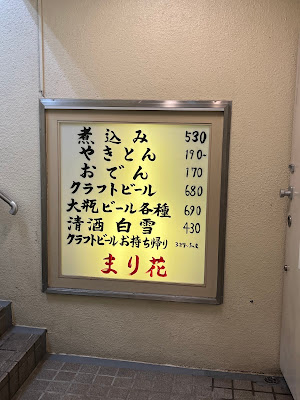 煮込み 530
やきとん 190~
おでん 170
クラフトビール 680
大瓶ビール各種 690
清酒白雪 430
クラフトビールお持ち帰り
まり花